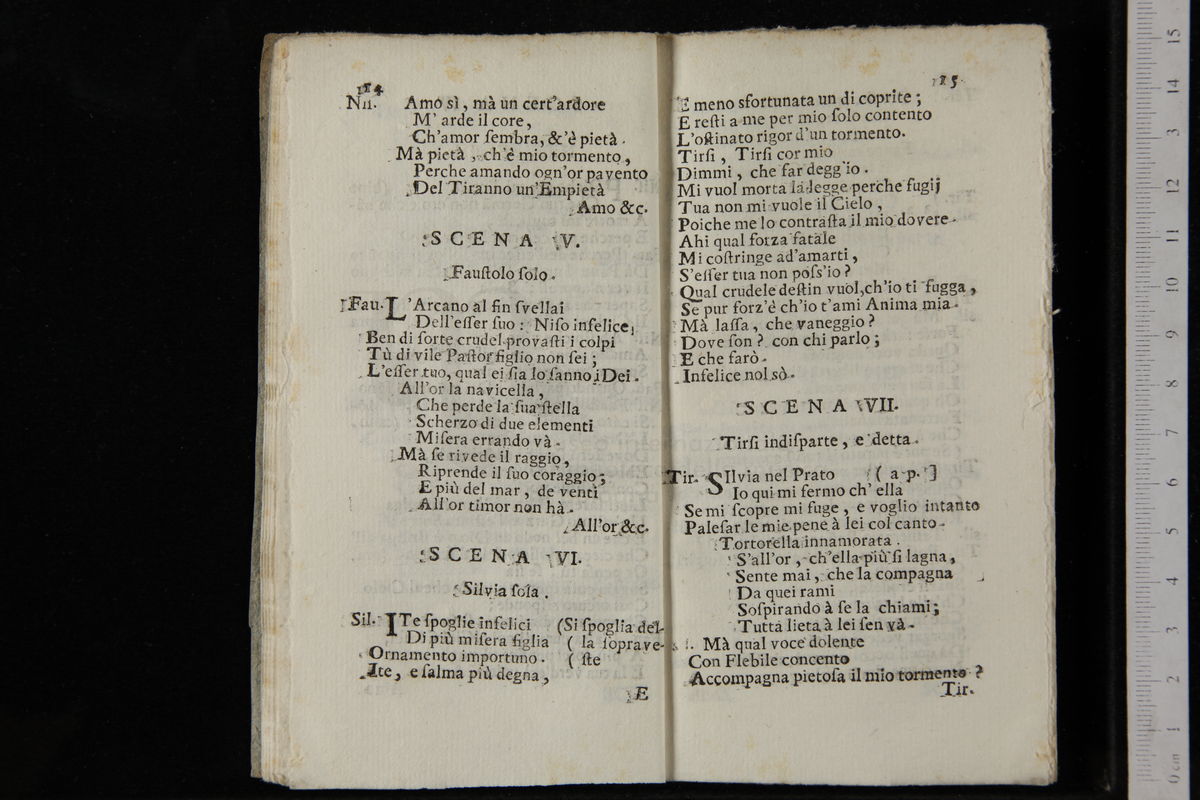 184
Nil. Amo sì, mà un cert'ardore
M' arde il core,
Ch'amor ſembra, &'è pietà.
Mà pietà, ch'è mio tormento,
Perche amando ogn'or pavento
Del Tiranno un'Empietà
Amo &c.
SCENA V.
Fauſtolo ſolo.
Fau. L'Arcano al fin ſvellai
Dell'eſſer ſuo: Niſo infelice,
Ben di ſorte crudel provaſti i colpi
Tù di vile Paſtor figlio non ſei;
L'eſſer tuo, qual ei ſia lo ſanno i Dei.
All'or la navicella,
Che perde la ſua ſtella
Scherzo di due elementi
Miſera errando và.
Mà ſe rivede il raggio,
Riprende il ſuo coraggio;
E più del mar, de venti
All'or timor non hà.
All'or &c.
SCENA VI.
Silvia ſola.
Sil. ITe ſpoglie infelici (Si ſpoglia del-
Di più miſera figlia ( la ſoprave-
Ornamento importuno. ( ſte
Ite, e ſalma più degna,
E
185
E meno sfortunata un di coprite;
E reſti a me per mio ſolo contento
L'oſtinato rigor d'un tormento.
Tirſi, Tirſi cor mio
Dimmi, che far degg'io.
Mi vuol morta la legge perche fugij
Tua non mi vuole il Cielo,
Poiche me lo contraſta il mio dovere.
Ahi qual forza fatale
Mi coſtringe ad'amarti,
S'eſſer tua non poſs'io?
Qual crudele deſtin vuol, ch'io ti fugga,
Se pur forz'è ch'io t'ami Anima mia.
Mà laſſa, che vaneggio?
Dove ſon? con chi parlo;
E che farò.
Infelice nol sò.
SCENA VII.
Tirſi indiſparte, e detta.
Tir. SIlvia nel Prato ( a p. ]
Io qui mi fermo ch' ella
Se mi ſcopre mi fuge, e voglio intanto
Paleſar le mie pene à lei col canto.
Tortorella innamorata.
S'all'or, ch'ella più ſi lagna,
Sente mai, che la compagna
Da quei rami
Soſpirando à ſe la chiami;
Tutta lieta à lei ſen và.
Mà qual voce dolente
Con Flebile concento
Accompagna pietoſa il mio tormento?
Tir.